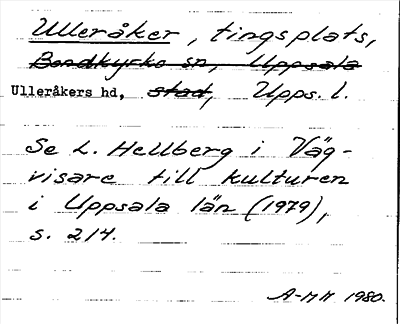 Ulleråker, tingsplats,
Bondkyrko sn, Uppsala
Ulleråkers hd, stad, Upps. l.
Se L. Hellberg i Väg-
visare till kulturen
i Uppsala län (1979),
s. 214.
A-MH 1980.